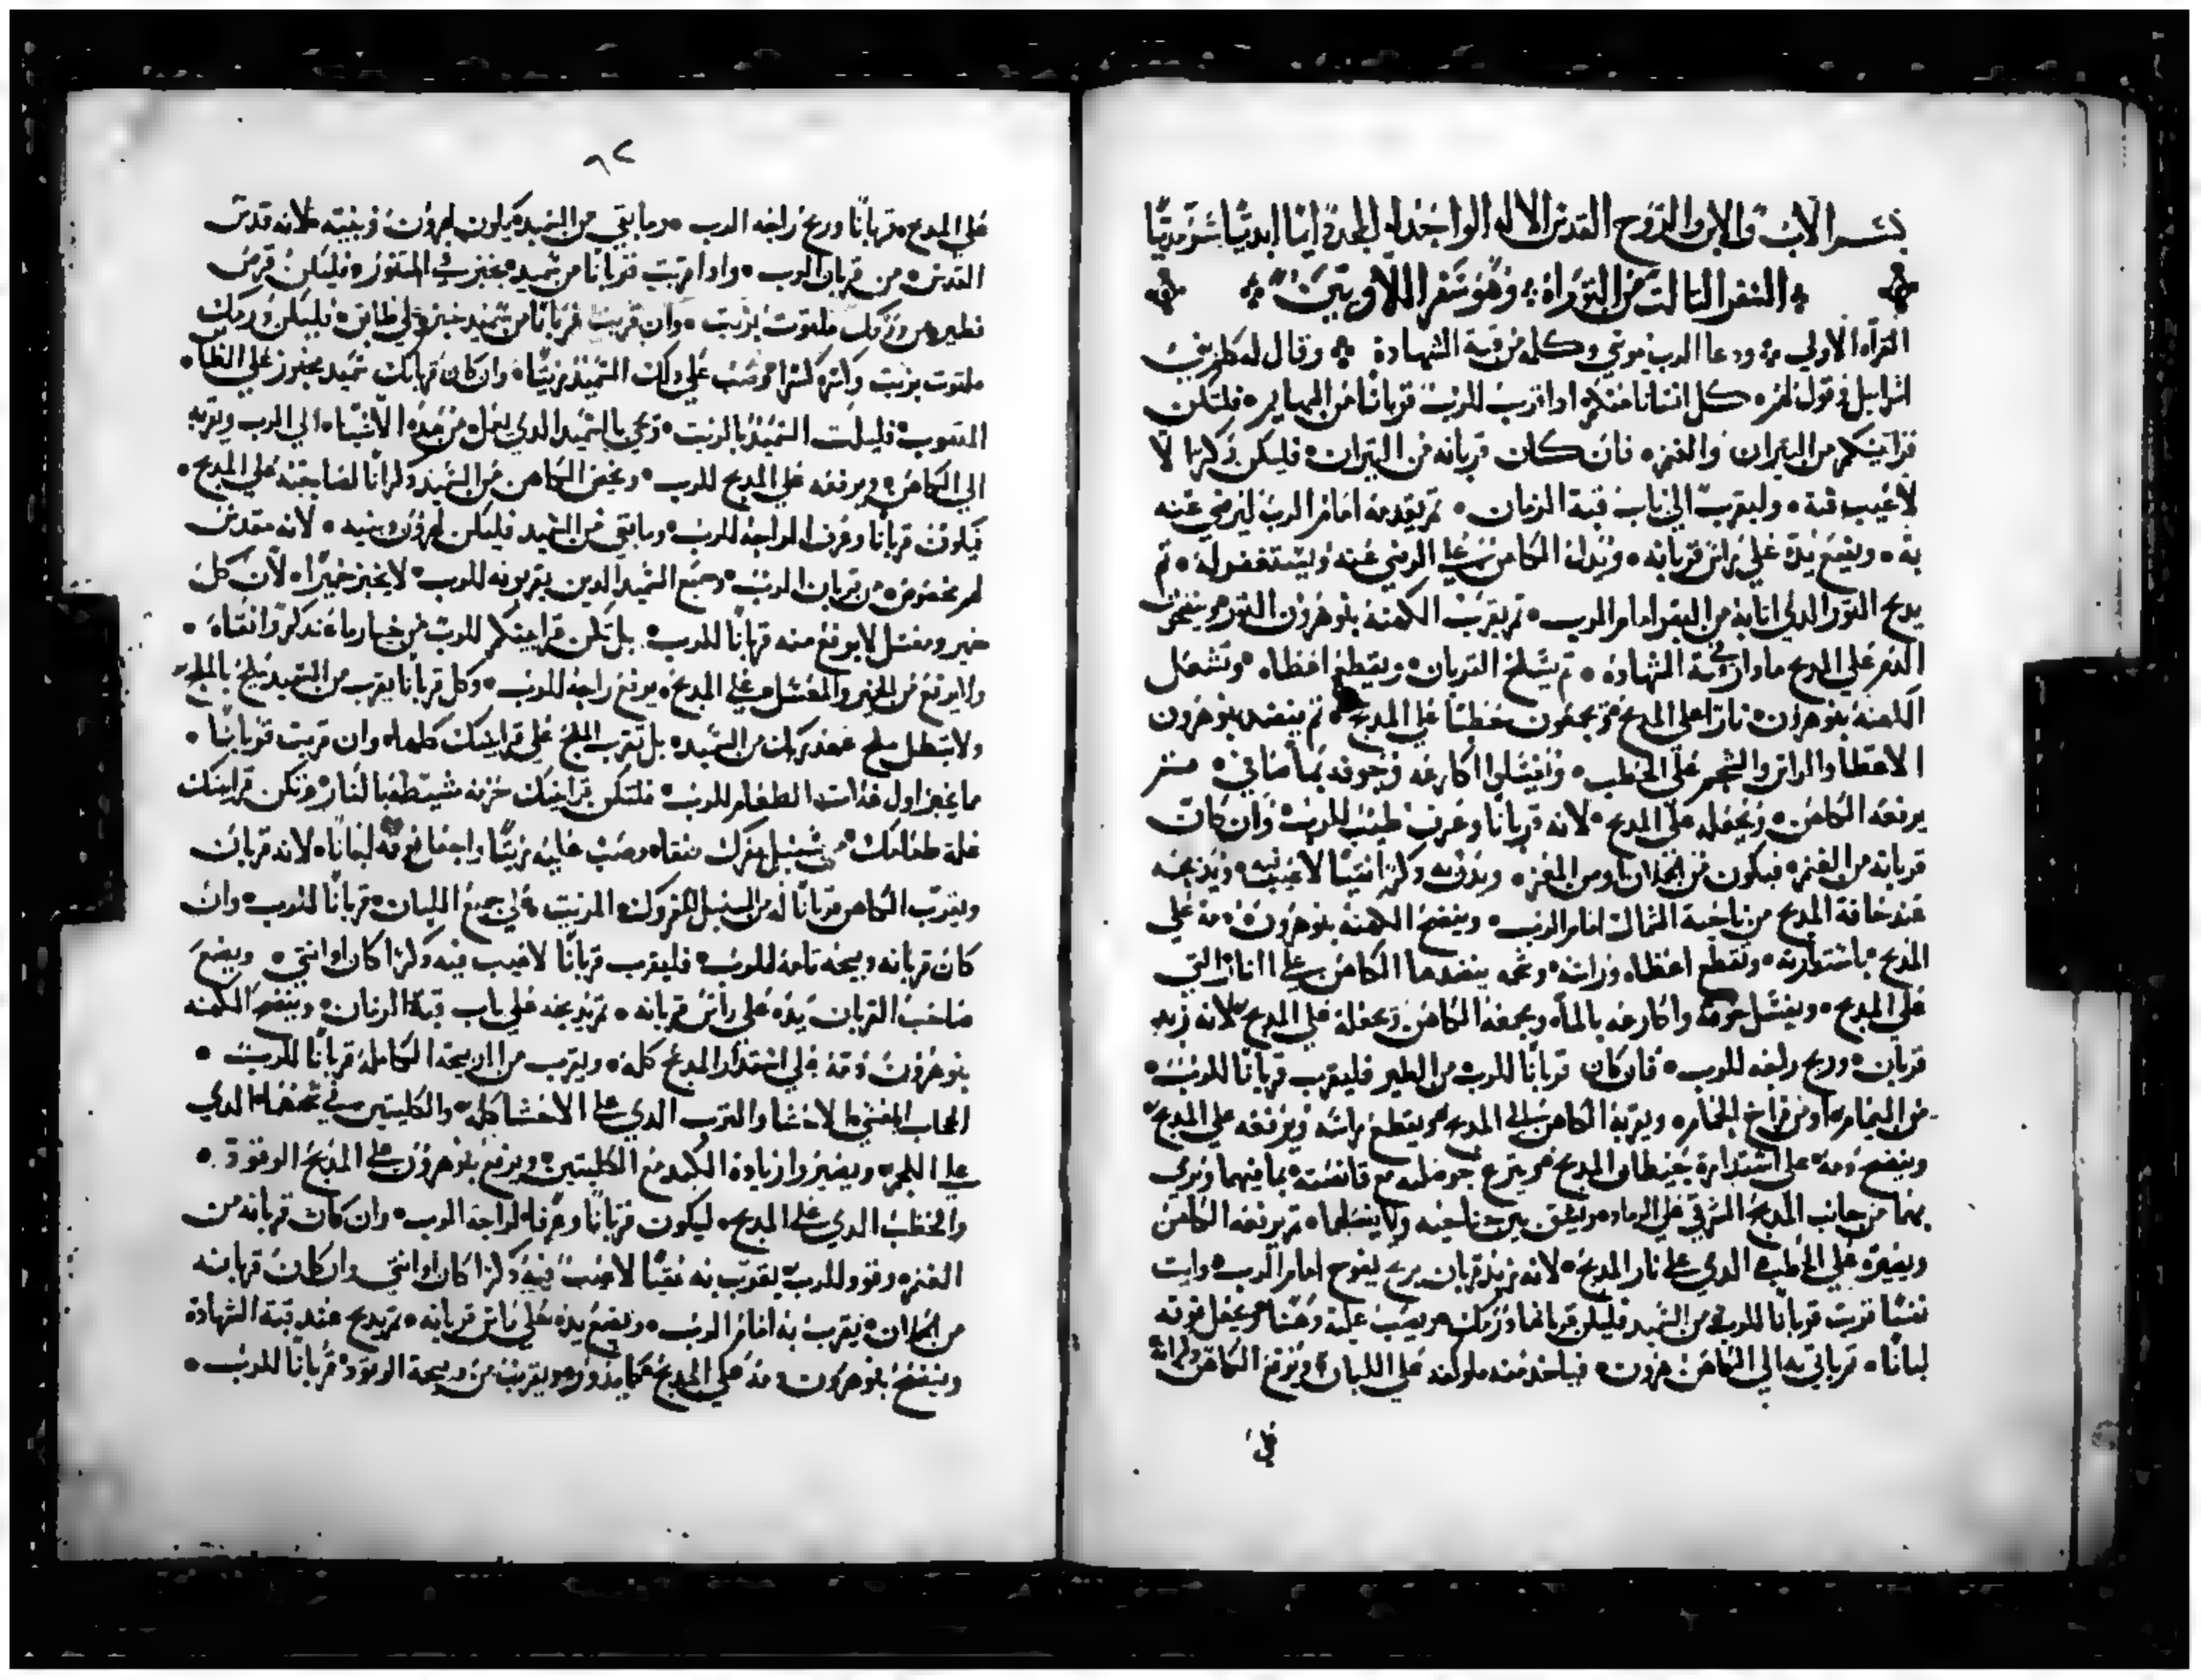 بسم الاب والابن والروح القدس الاله الواحد له المجد دايما ابديا سرمديا
السفر التالت من التوراة وهو سفر اللاويين
القراه الاولي ودعا الرب موسي وكلمه من قبة الشهادة وقال له كلم بني
اسرايل وقول لهم كل انسانا منكم ادا قرب للرب قربانا من البهايم فلتكن
قرابينكم من البقران والغنم فان كان قربانه من البقران فليكن دكرا لا
لاعيب فية وليقرب الي باب قبة الزمان تم يقدمه امام الرب ليرضي عنه
به ويضع يدة علي راس قربانه وذلك الكاهن علي الرضي عنه ويستغفر له تم
يدبح التور الدي اتا به من البقر امام الرب تم يقرب الكهنة بنو هرون الدم وينضحون
الدم علي المدبح مادار قبة الشهادة تم يسلخ القربان ويقطع اعظاه وتشعل
الكهنة بنو هرون نارا علي المدبح تم يجعلون حطبا علي المدبح تم ينضد بنو هرون
الاعظا والراس والشحم علي الحطب وليغسلوا اكارعه وجوفه بما صافي تم
يرفعه الكاهن ويجعله علي المدبح لانه قربانا وعرف طيب للرب وان كان
قربانه من الغنم فيكون من الجدان او من المعز ويدنيه دكرا نقيا لاعيب فيه ويدبحه
عند حافة المدبح من ناحية الشمال امام الرب وينضح الكهنة بنو هرون دمه علي
المدبح باستدارته وتقطع اعظاه وراسه وشحمه ينضدها الكاهن علي النار التي
علي المدبح ويغسل جوفه واكارعه بالماء ويجمعه الكاهن ويجعله علي المدبح لانه
قربان وريح رايحه للرب فان كان قربانا للرب من الطير فليقرب قربانا للرب
من اليمام او من فراخ الحمام ويقربه الكاهن الي المدبح ويقطع راسه ويرفعه علي المدبح
وينضح دمه علي استدارة حيطان المدبح وينزع حوصلته مع قانصته بما فيهما ويرمي
بهما من جانب المدبح الشرقي علي الرماد ويشق بين جناحيه ولا يفصلهما تم يرفعه الكاهن
ويصيره علي الحطب الدي علي نار المدبح لانه قربان يفوح امام الرب وايت
نفسا قربت قربانا للرب من السميد فليكن قربانها درمك ويصب عليه دهنا ويجعل فوقه
لبانا تم ياتي به الي الكاهن هرون فياخد منه ملو كفه علي اللبان ويرفع الكاهن دكرانه
علي
٩٢
علي المدبح قربانا وريح رايحه الرب وما بقي من السميد فيكون لهرون وبنيه لانه قدس
القدس من قربان الرب وادا قربت قربانا من سميد يخبز في التنور فليكن قرص
فطير من درمك ملتوت بزيت وان قربت قربانا من سميد خبز في طابق فليكن درمك
ملتوت بزيت واتره كسرا وصب علي دلك السميد زيتا وان كان قربانك سميد مخبوز علي الطا
المتقوب فليلت السميد بالزيت وتجي بالسميد الدي تعمل من هده الاشيا الي الرب وتقربه
الي الكاهن ويرفعه علي المدبح للرب ويخص الكاهن من السميد دكرانا لصاحبه علي المدبح
فيكون قربانا وعرف الرايحه للرب وما بقي من السميد فليكن لهرون وبنيه لانه مقدس
لهم مخصوص من قربان الرب وجميع السميد الدين يقربونه للرب لايخبز خميرا لان كل
خمير وعسل لايرفع منه قربانا للرب بل تكن قرابينكم للرب من
ولا يرفع من الخمير والعسل علي المدبح يرفع رايحة للرب وكل قربانا يقرب من السميد يملح بالملح
ولا يبطل ملح عهد ربك من السميد بل تقرب الملح علي قرابينك كلها وان قربت قربانا
مما يخبز اول غدات الطعام للرب فلتكن قرابينك حزمه مشيطه بالنار وتكن قرابينك
علة طعامك من سنبل يفرك منقاه وصب عليه زيتا واجعل فوقه لبانا لانه قربان
ويقرب الكاهن قربانا له من السنبل المفروك المزيت علي جميع اللبان قربانا للرب وان
كان قربانه دبيحه تامه للرب فليقرب قربانا لاعيب فيه دكرا كان او انتي ويضع
صاحب القربان يده علي راس قربانه تم يدبحه علي باب قبة الزمان وينضح الكهنه
بنو هرون دمه علي استدارة المدبح كله ويقرب من الدبيحة الكاملة قربانا للرب
الحجاب المغشي الاحشا والترب الدي علي الاحشا كله والكليتين مع شحمهما الدي
علي اللحم ويصيروا زيادة الكبد مع الكليتين ويرفع بنو هرون علي المدبح الوقود
والحطب الدي علي المدبح ليكون قربانا وعرفا لرايحة الرب وان كان قربانه من
الغنم وقود للرب يقرب به نقيا لاعيب فيه دكرا كان او انتي وان كان قربانه
من الجدان يقرب به امام الرب ويضع يده علي راس قربانه تم يدبح عند قبة الشهادة
وينضح بنو هرون دمه علي المدبح كما يدور ويقرب من دبيحة الوقود قربانا للرب